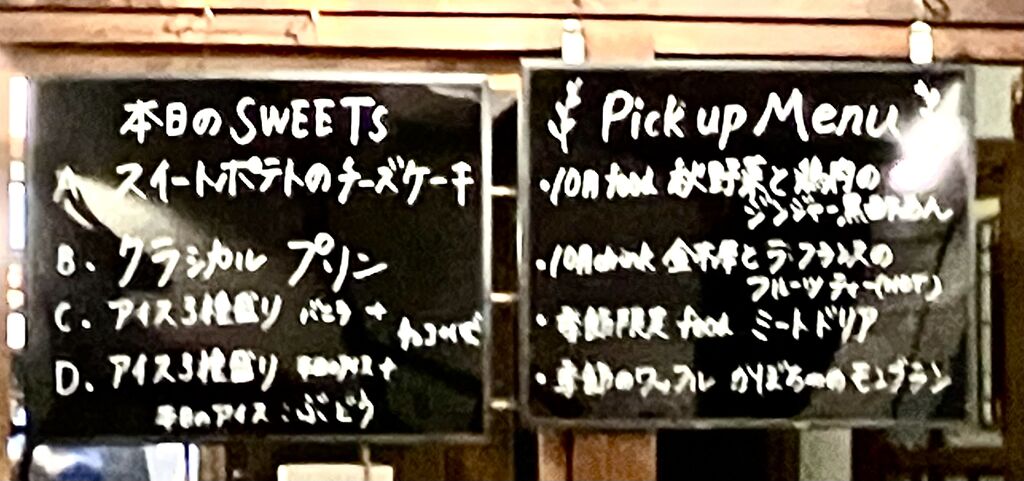 本日のSWEETs
A. スイートポテトのチーズケーキ
B. クラシカル プリン
C. アイス3種盛り バニラ +
D. アイス3種盛り 本日のアイス +
本日のアイス：ぶどう
Pick up Menu
・10月food 秋野菜と鶏肉の
ジンジャー黒酢あん
・10月drink 金木犀とラ・フランスの
フルーツティー(HOT)
・季節限定 food ミートドリア
・季節のワッフル かぼちゃのモンブラン